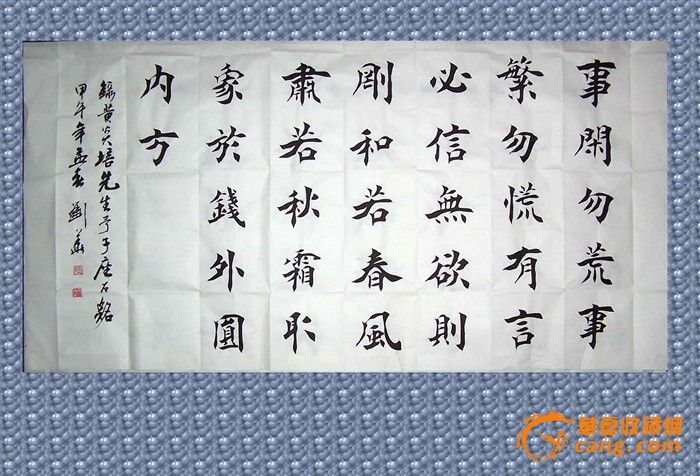 事閑勿荒事
繁勿慌有言
必信無欲則
剛和若春風
肅若秋霜取
象於錢外圓
内方
錄黄炎培先生予子座右銘
甲午年孟春劉
華夏收藏網
cang.com